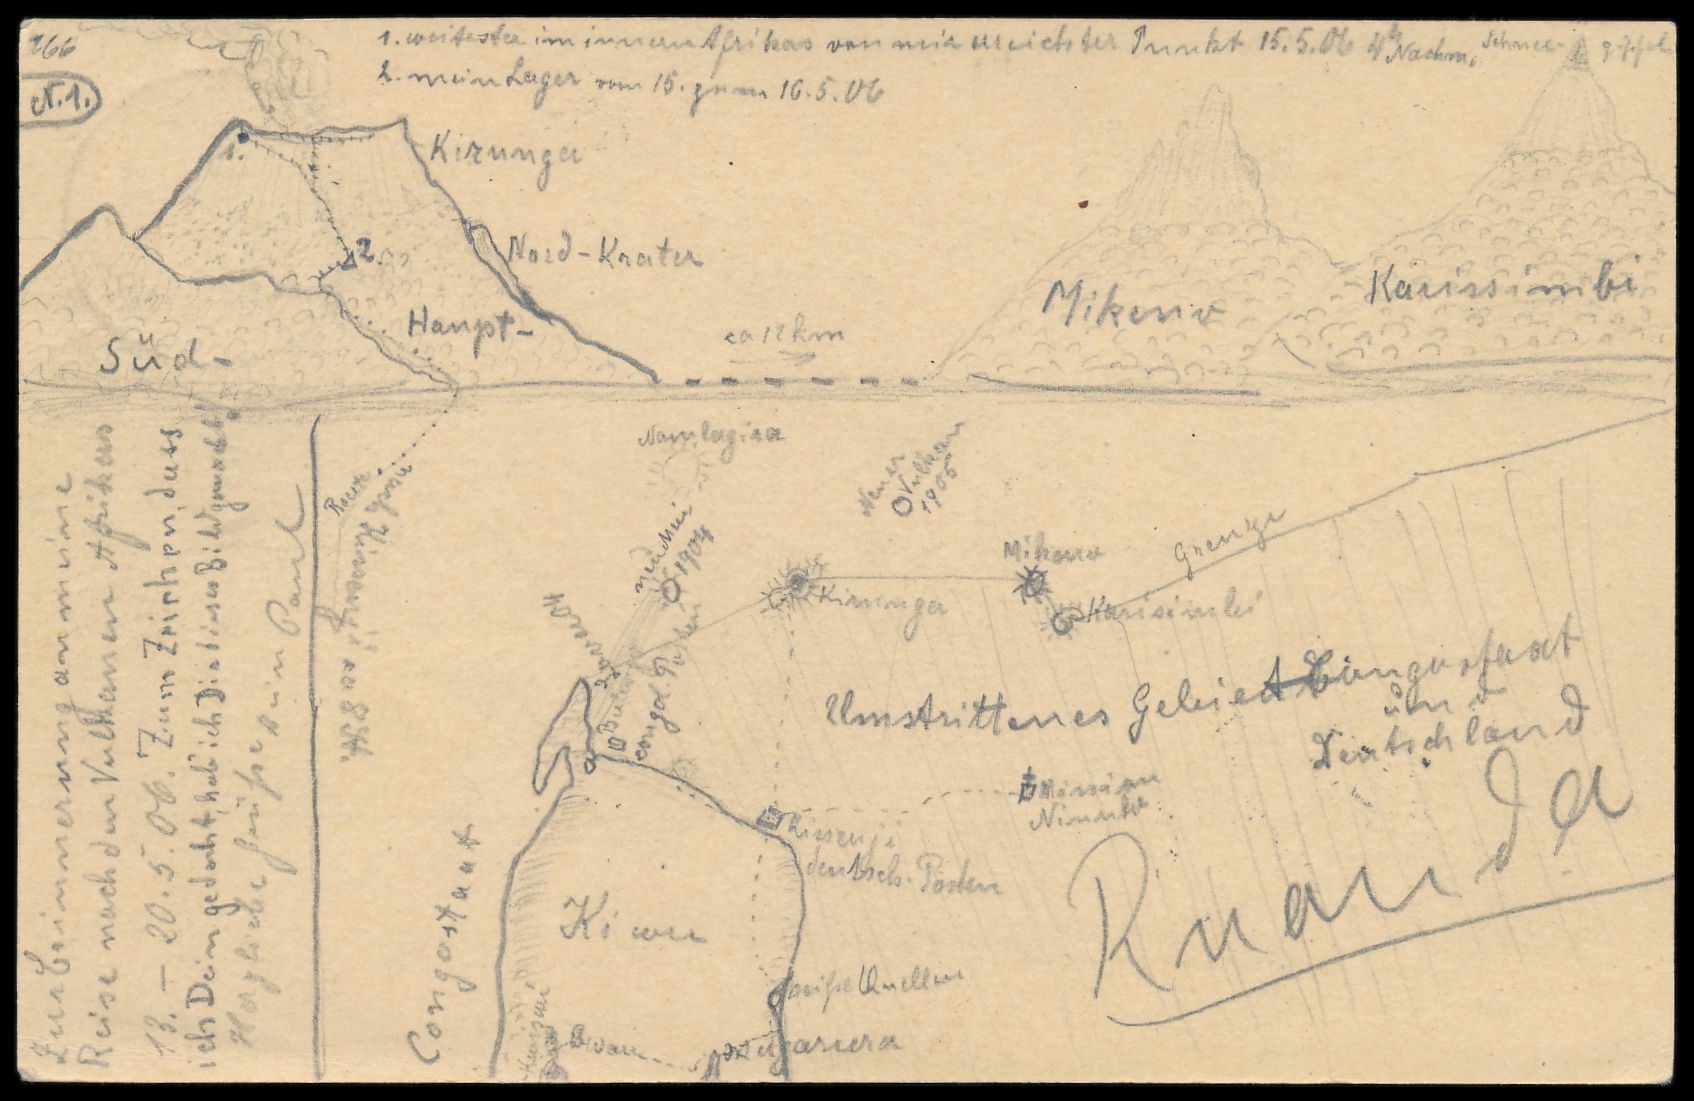 166
N.1.
1. weitester im innern Afrikas von mir erreichter Punkt 15.5.06 4h Nachm.
Schnee-gipfel
2. mein Lager vom 15. zum 16.5.06
1.
Kirunga
2.
Nord-Krater
Haupt-
Süd-
ca 12 km
Mikeno
Karissimbi
Zur Erinnerung an meine
Reise nach den Vulkanen Afrikas
13. – 20.5.06. Zum Zeichen, dass
ich Dein gedacht, hab' ich Dir dieses Bild gemacht.
Herzliche Grüße Dein Paul
Route
Kissenji ca 8 St.
Namlagira
Neuer
Vulkan
1905
1904
Mikeno
Grenze
Kirunga
Karisimbi
Umstrittenes Gebiet Congostaat
und
Deutschland
congol. Posten
Mission
Kissenji
deutsch. Posten
Ruanda
Kiwu
Congostaat
heiße Quellen